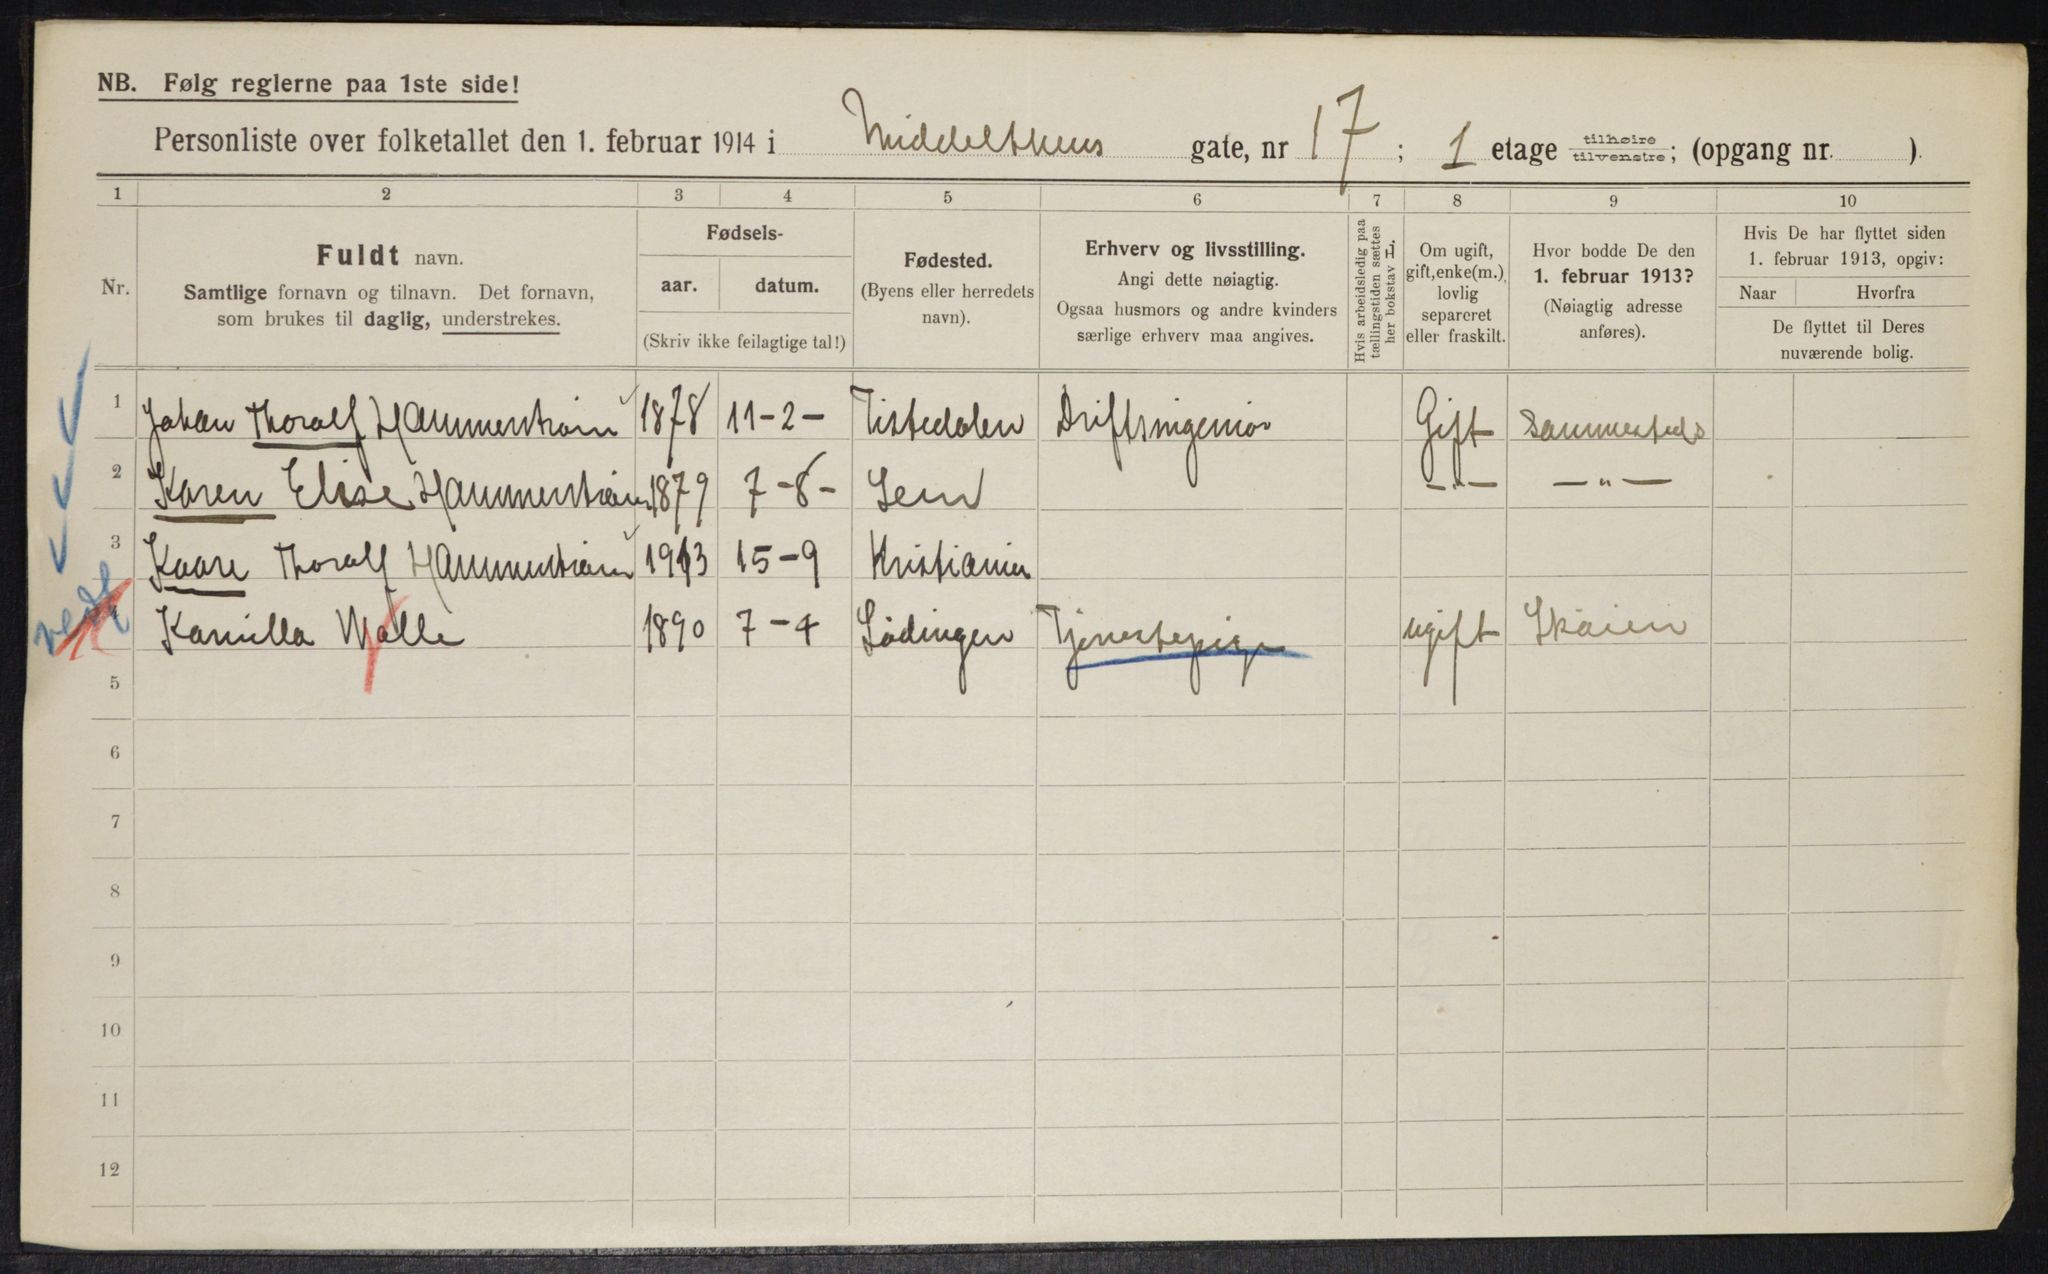 NB. Følg reglerne paa 1ste side!
Personliste over folketallet den 1. februar 1914 i Middelthuns gate, nr 17; 1 etage tilhøire tilvenstre; (opgang nr. ).
1 2 3 4 5 6 7 8 9 10
Nr.
Fuldt navn.
Samtlige fornavn og tilnavn. Det fornavn,
som brukes til daglig, understrekes.
Fødsels-
aar. datum.
(Skriv ikke feilagtige tal!)
Fødested.
(Byens eller herredets
navn).
Erhverv og livsstilling.
Angi dette nøiagtig.
Ogsaa husmors og andre kvinders
særlige erhverv maa angives.
Hvis arbeidsledig paa
tællingstiden sættes
her bokstav L.
Om ugift,
gift, enke(m.),
lovlig
separeret
eller fraskilt.
Hvor bodde De den
1. februar 1913?
(Nøiagtig adresse
anføres).
Hvis De har flyttet siden
1. februar 1913, opgiv:
Naar Hvorfra
De flyttet til Deres
nuværende bolig.
1 Johan Thoralf Hammerstrøm 1878 11-2- Tistedalen Driftsingeniør Gift Sammesteds
2 Karen Elise Hammerstrøm 1879 7-8- Sem -"- -"-
3 Kaare Thoralf Hammerstrøm 1913 15-9 Kristiania
4 Kamilla Walle 1890 7-4 Lødingen Tjenestepige ugift Skøien
5
6
7
8
9
10
11
12